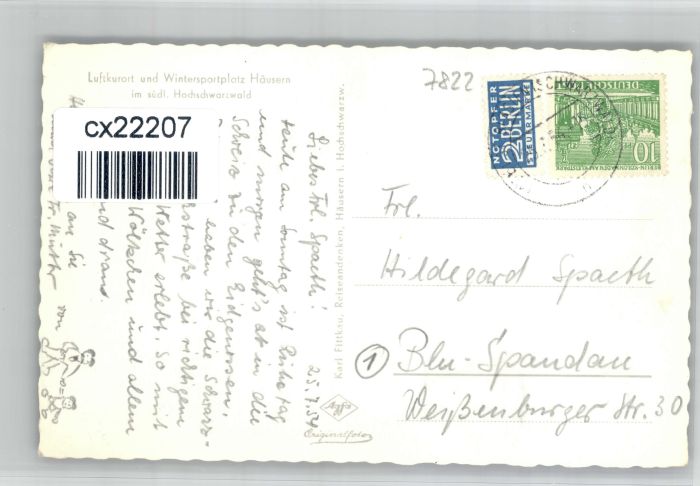 Luftkurort und Wintersportplatz Häusern
im südl. Hochschwarzwald
7822
cx22207
25.7.54
Liebes Frl. Spaeth!
Heute am Sonntag ist Ruhetag
und morgen geht's ab in die
Schweiz zu den Eidgenossen.
haben wir die Schwarz-
straße bei richtigem
Wetter erlebt. So mit
Wölkchen und allem
und dran
an Sie
u. Ihre Fr. Mutter
von
Karl Fittkau, Reiseandenken, Häusern i. Hochschwarzw.
Agfa
Originalfoto
NOTOPFER
2 BERLIN
STEUERMARKE
DEUTSCHE POST
10
Frl.
Hildegard Spaeth
1 Bln-Spandau
Weißenburger Str. 30